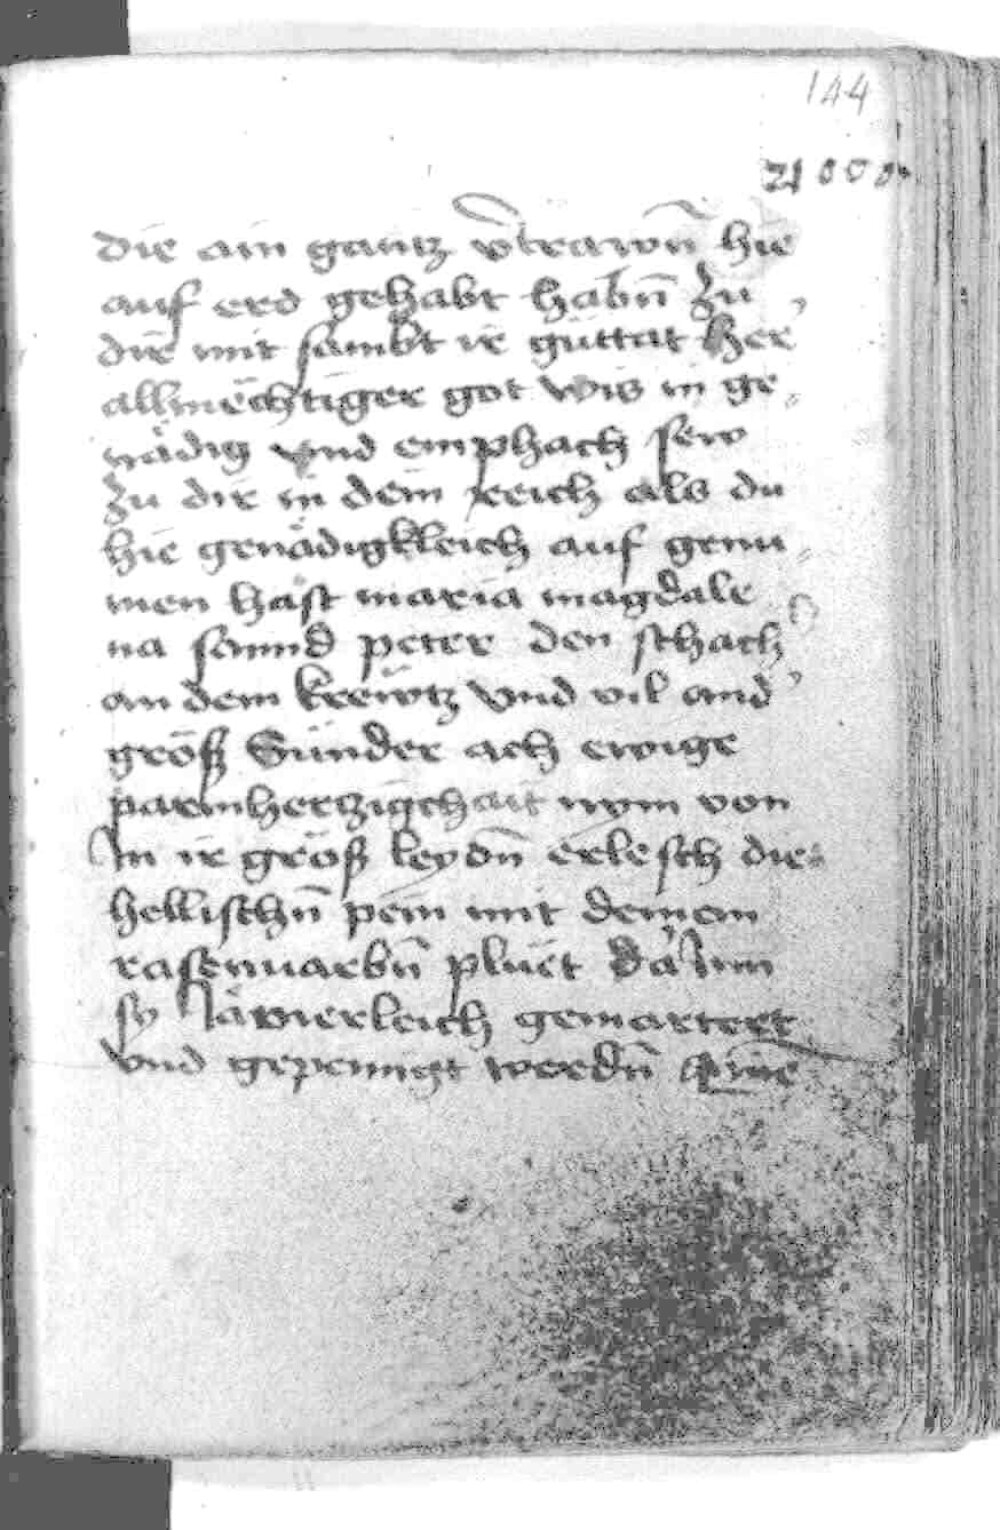 144
die ain gantz v̄trawn̄ hie
auf erd gehabt habn̄ zu
dir mit sambt ir güttat her
allmëchtiger got wis in ge
nädig vnd emphach sew
zu dir in dein reich als du
hie genädigkleich auf genu
men hast maria magdale
na sannd peter den schach
an dem krewtz vnd vil and
gröss Sünder ach ewige
parmhertzigchait nym von
In ir gröss leydn̄ erlesch die
hellischn̄ pein mit deinem
rasenuarbn̄ pluet da Inn
sy Jämerleich gemartert
vnd gepeinigt werdn̄